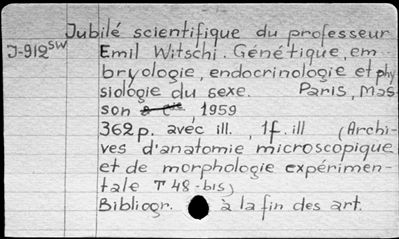 Jubilé scientifique du professeur
J-912SW Emil Witschi. Génétique, em
bryologie, endocrinologie et phy
siologie du sexe. Paris, Mas-
son & Cie, 1959
362 p. avec ill., 1 f. ill (Archi-
ves d'anatomie microscopique
et de morphologie expérimen-
tale T 48-bis)
Bibliogr. à la fin des art.